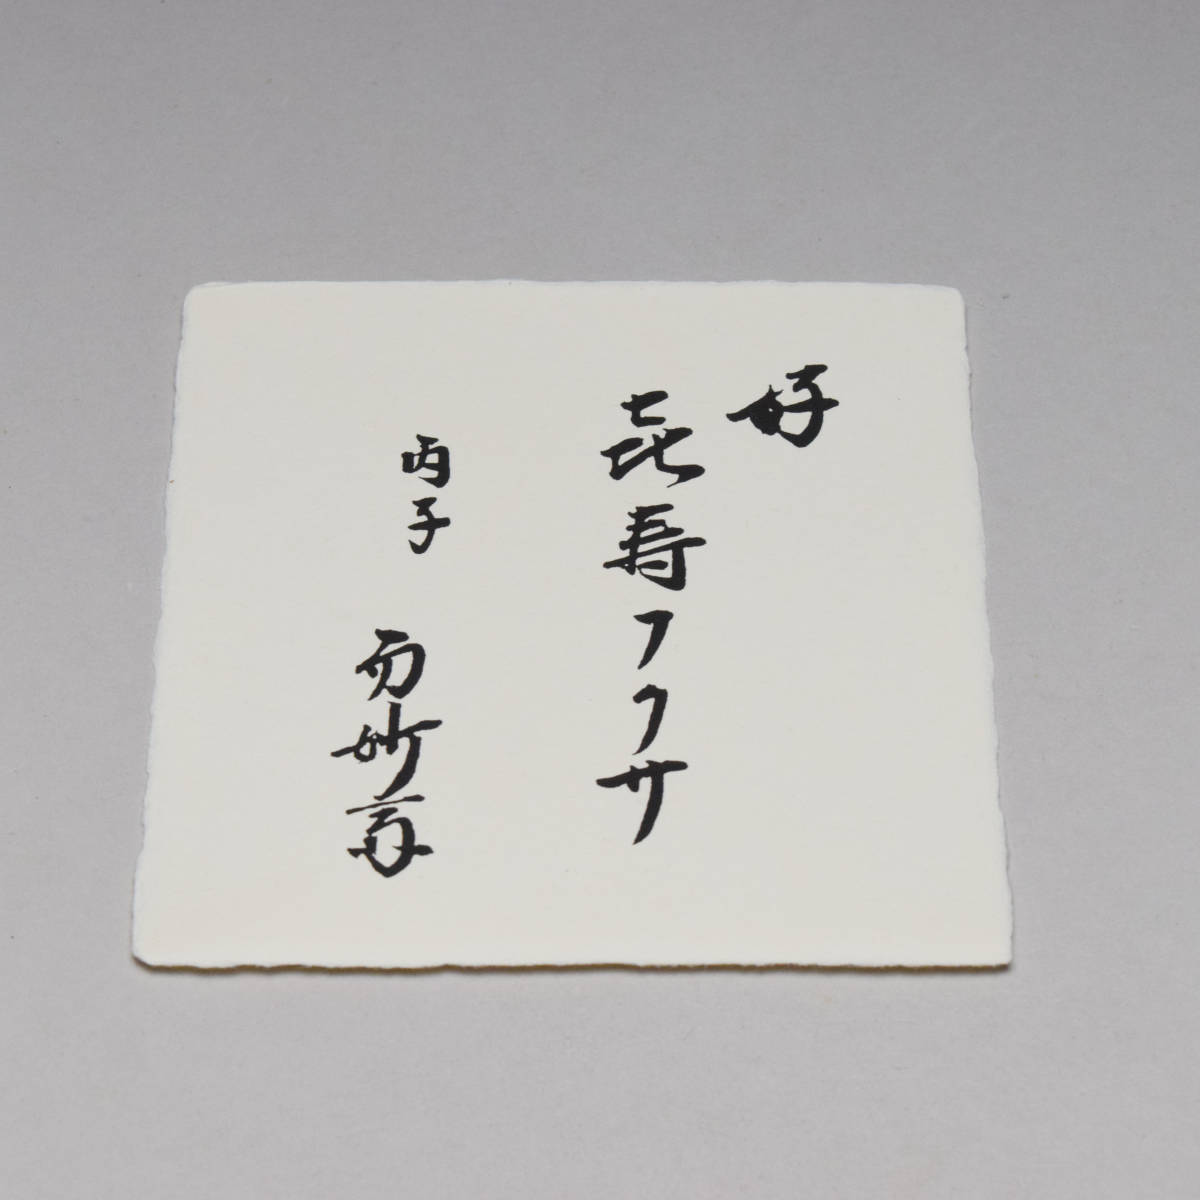 好
㐂寿フクサ
丙子 而妙斎